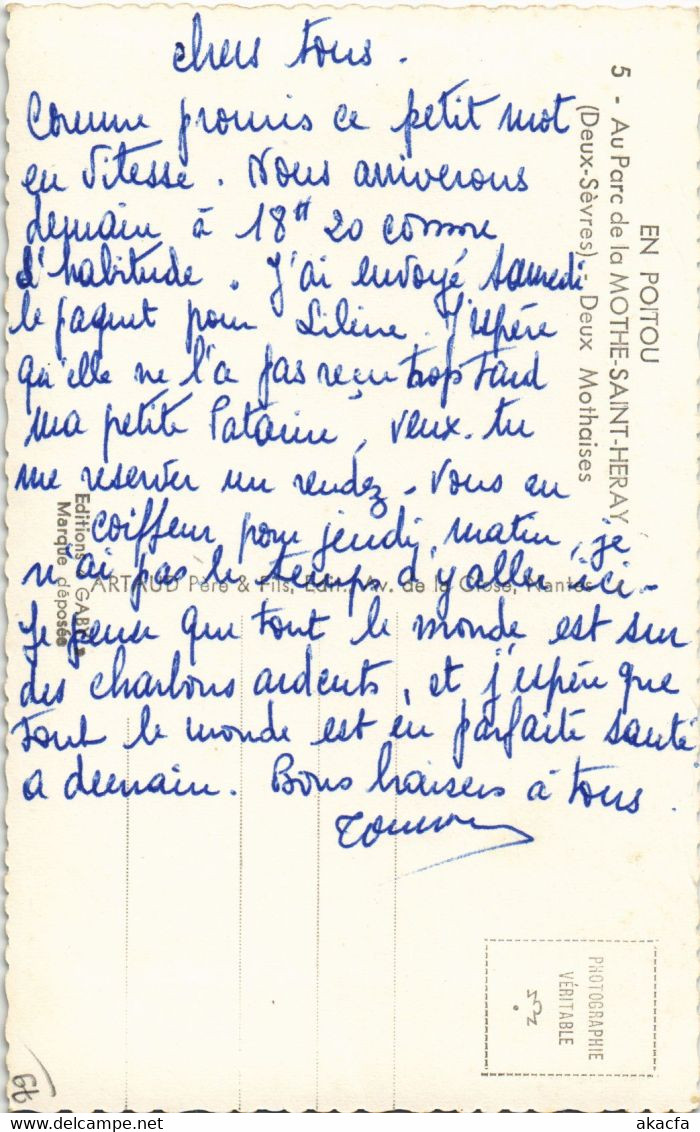 chers tous.
Comme promis ce petit mot
en vitesse. Nous arriverons
demain à 18H 20 comme
d'habitude. J'ai envoyé samedi
le paquet pour Liline. J'espère
qu'elle ne l'a pas reçu trop tard
ma petite, veux-tu
me reserver un rendez-vous au
coiffeur pour jeudi matin, je
n'ai pas le temps d'y aller ici-
Je pense que tout le monde est sur
des charbons ardents, et j'espère que
tout le monde est en parfaite santé
a demain. Bons baisers à tous.
EN POITOU
5 - Au Parc de la MOTHE-SAINT-HERAY
(Deux-Sèvres) - Deux Mothaises
Editions GABY
Marque déposée
ARTAUD Père & Fils, Edit., Av. de la Close, Nantes
PHOTOGRAPHIE
VÉRITABLE
akacfa
akacfa